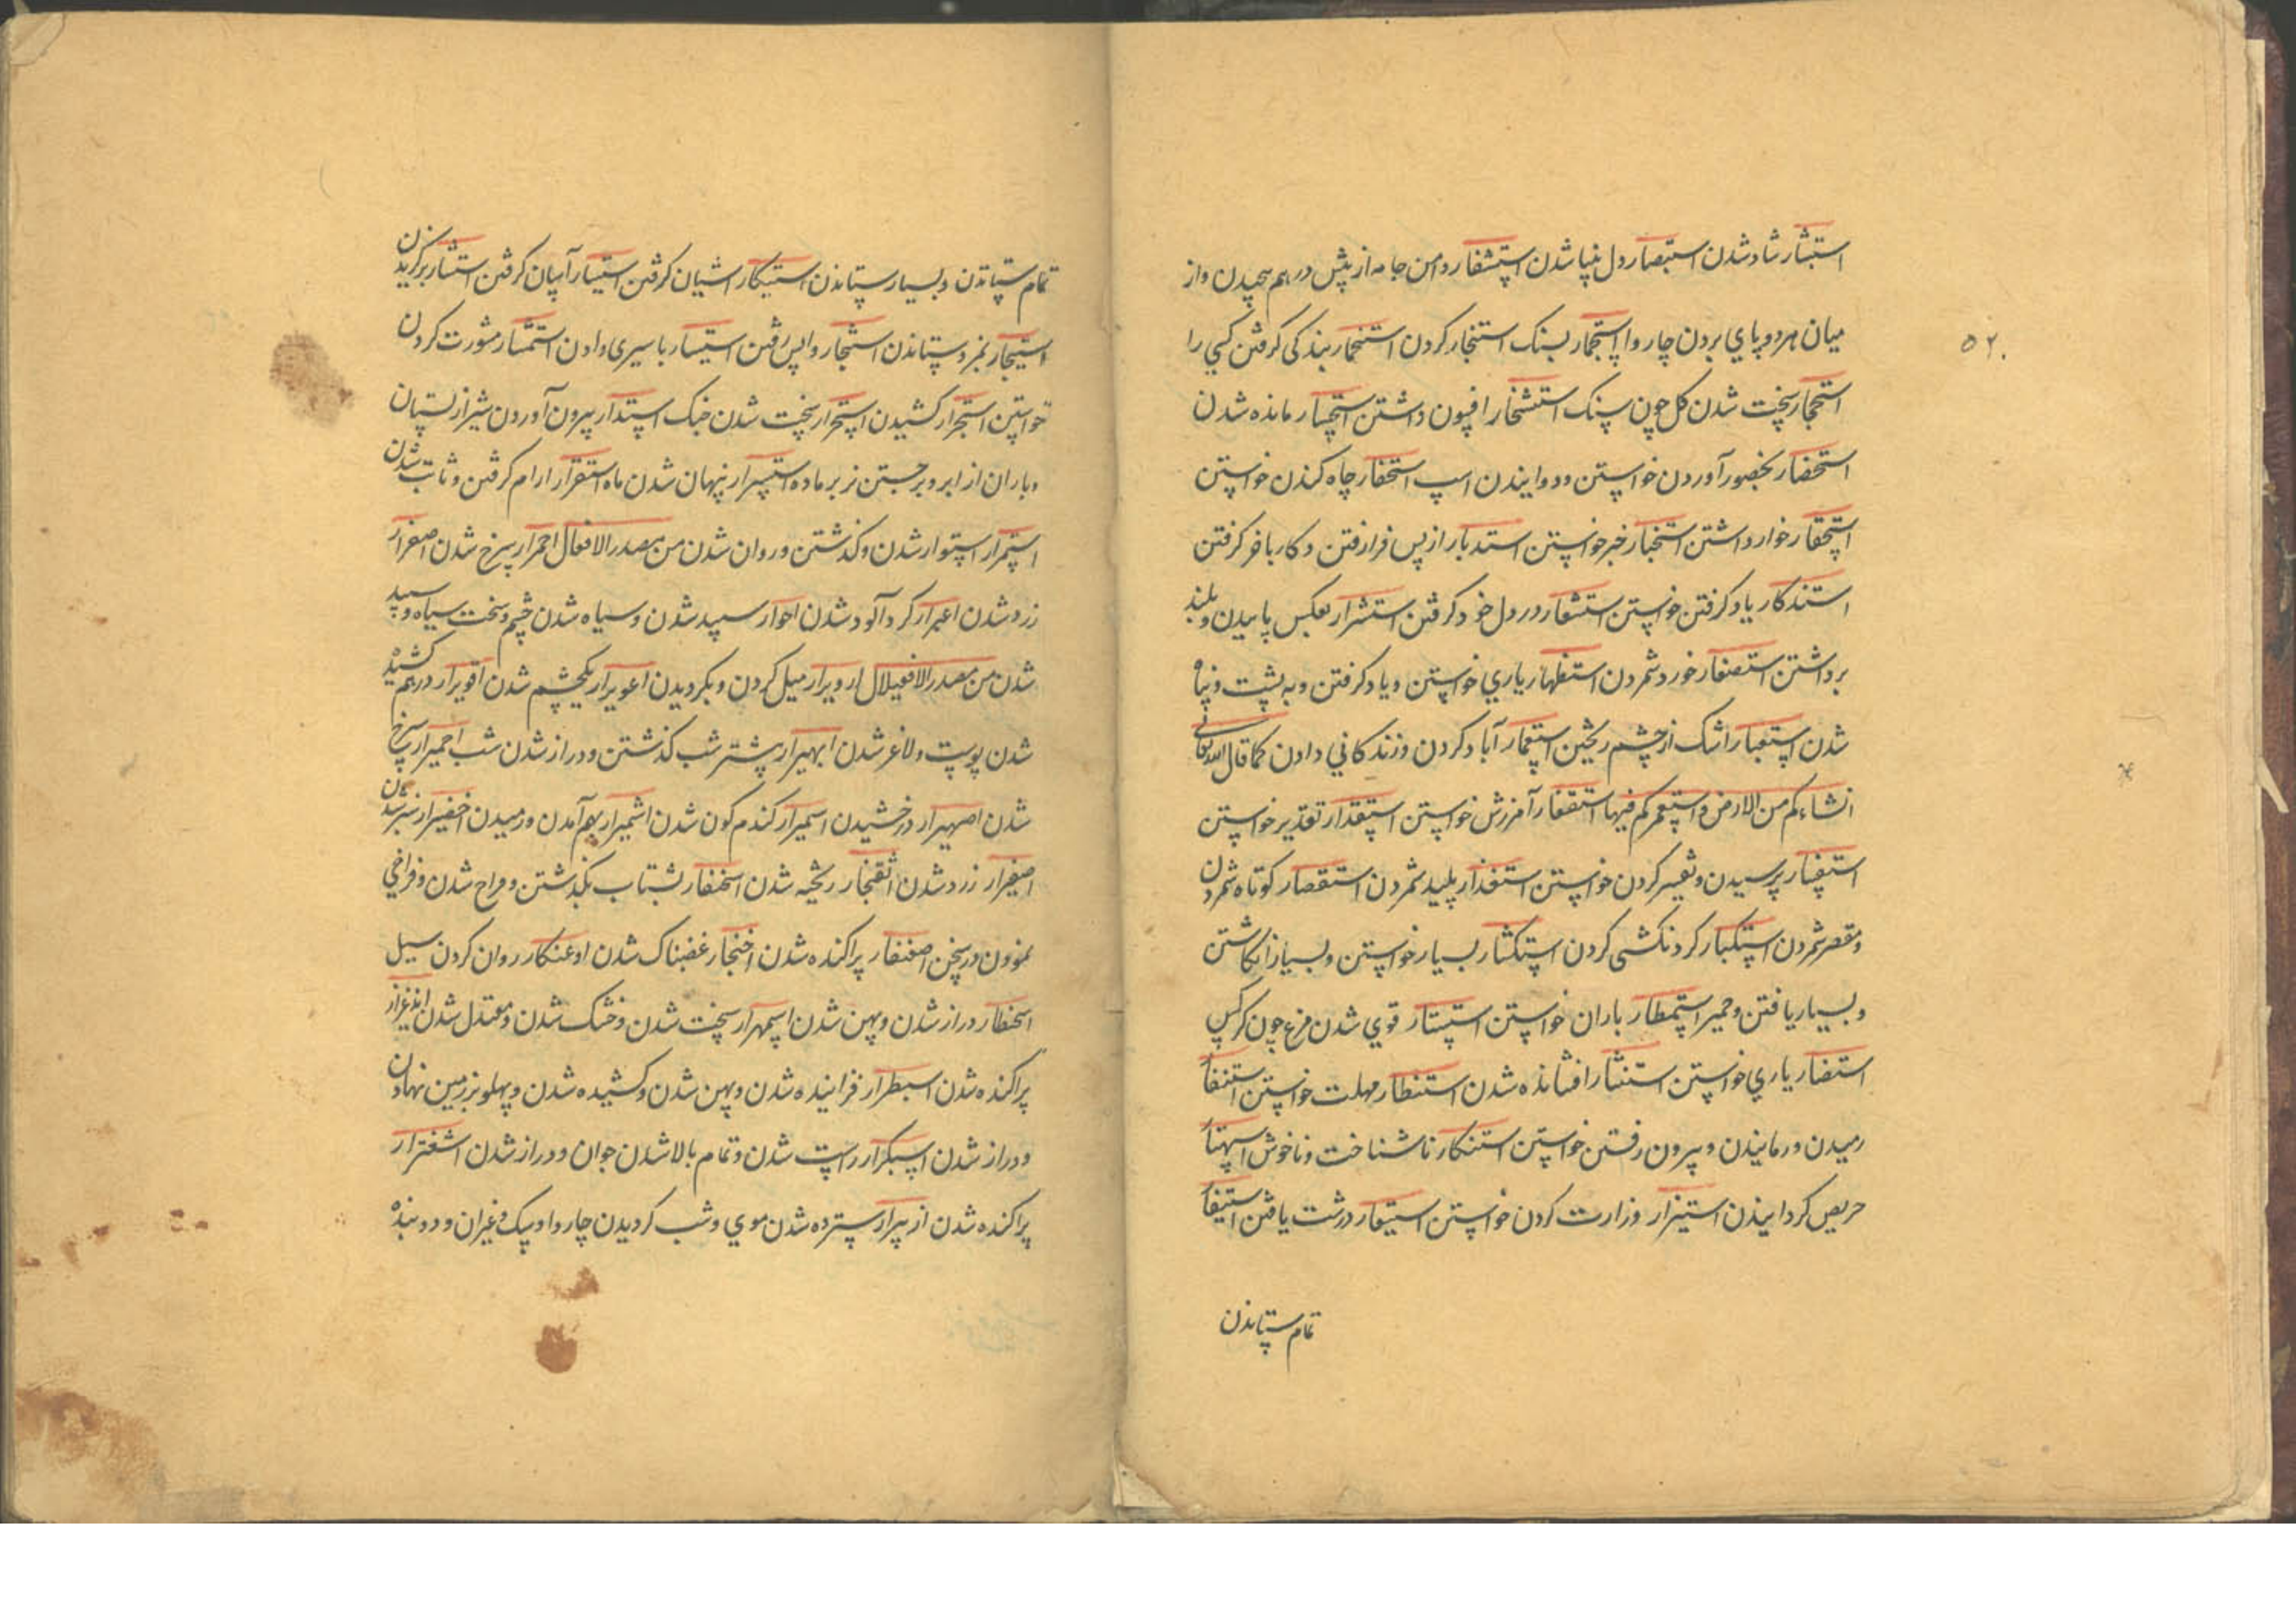 استبشار شاد شدن استبصار دل بینا شدن استشفار دامن جامه از پش در هم پیچیدن واز
۵۲.
میان هر دو پای بردن چاروا استجمار بسنک استنجار کردن استخمار بندکی کرفتن کسی را
استحجار سخت شدن کل چون سنک استشخار افیون داشتن استحسار مانده شدن
استحضار بحضور آوردن خواستن ودوانیدن اسپ استحفار چاه کندن خواستن
استحقار خوار داشتن استخبار خبر خواستن استدبار از پس فرا رفتن و کار با خر کرفتن
استذکار یاد کرفتن خواستن استشعار در دل خود کرفتن استشزار بعکس پا بیدن و بلند
برداشتن استصغار خورد شمردن استظهار یاری خواستن ویاد کرفتن وبه پشت و پناه
شدن استعبار اشک از چشم ریختن استعمار آباد کردن وزندکانی دادن کما قال الله تعالی
انشاءکم من الارض واستعمرکم فیها استغفار آمرزش خواستن استقدار تقدیر خواستن
استفسار پرسیدن وتفسیر کردن خواستن استقذار پلید شمردن استقصار کوتاه شمردن
ومقصر شمردن استکبار کردنکشی کردن استکثار بسیار خواستن وبسیار انکاشتن
وبسیار یافتن وحمیر استمطار باران خواستن استنسار قوی شدن مرغ چون کرکس
استنصار یاری خواستن استنثار افشانده شدن استنظار مهلت خواستن استنفار
رمیدن ورمانیدن وبیرون رفتن خواستن استنکار ناشناخت وناخوش استهتار
حریص کردانیدن استیزار وزارت کردن خواستن استیعار درشت یافتن استیفار
تمام ستاندن
تمام ستاندن وبسیار ستاندن استیکار اشیان کرفتن استیسار آسان کرفتن استیثار برکزیدن
استیجار بمزد ستاندن استیخار واپس رفتن استیسار با سیری دادن استشمار مشورت کردن
خواستن استجرار کشیدن استحرار سخت شدن جنک استدرار بیرون آوردن شیر از پستان
وباران از ابر وبرجستن نر بر ماده استسرار پنهان شدن ماه استقرار ارام کرفتن وثابت شدن
استمرار استوار شدن وکذشتن وروان شدن من مصدر الافعلال احمرار سرخ شدن اصفرار
زرد شدن اغبرار کرد آلود شدن احورار سپید شدن وسیاه شدن چشم وسخت سیاه وسپید
شدن من مصدر الافعیلال ازویرار میل کردن وبکردیدن اعویرار یکچشم شدن اقویرار درهم کشیده
شدن پوست ولاغر شدن ابهیرار بیشتر شب کذشتن ودراز شدن شب احمیرار سرخ
شدن اصهیرار درخشیدن اسمیرار کندم کون شدن اشمیرار بهم آمدن ورمیدن اخضیرار سبز شدن
اصفیرار زرد شدن اثعنجار ریخته شدن اسحنفار بشتاب بکذشتن وفراخ شدن وفراخی
نمودن در سخن اصعنفار پراکنده شدن اخنجار غضبناک شدن اوعنکار روان کردن سیل
اسحنطار دراز شدن وپهن شدن اسمهرار سخت شدن وخشک شدن ومعتدل شدن ابذعرار
پراکنده شدن اسبطرار خرانیده شدن وپهن شدن وکشیده شدن وپهلو بزمین نهادن
ودراز شدن اسبکرار راست شدن وتمام بالا شدن جوان ودراز شدن اشفترار
پراکنده شدن ازبیرار سترده شدن موی وشب کردیدن چاروا وسک وغیران ودونده